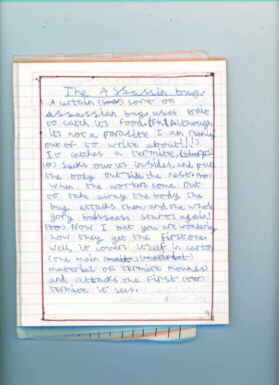 The Assassin bug.
A certain sort of
assassin bug uses bait
to catch its food. And although
its not a parasite I am
one of to write about!!!
It catches a termite,
sucks our its insides, and puts
the body outside the nest.
When the workers come out
to take away the body the
bug attacks them and the whole
gory business starts again!
Now I bet you are wondering
how they get the first one
well, it covers itself in
(the main
material of termite mounds)
and attacks the first
termite it sees.